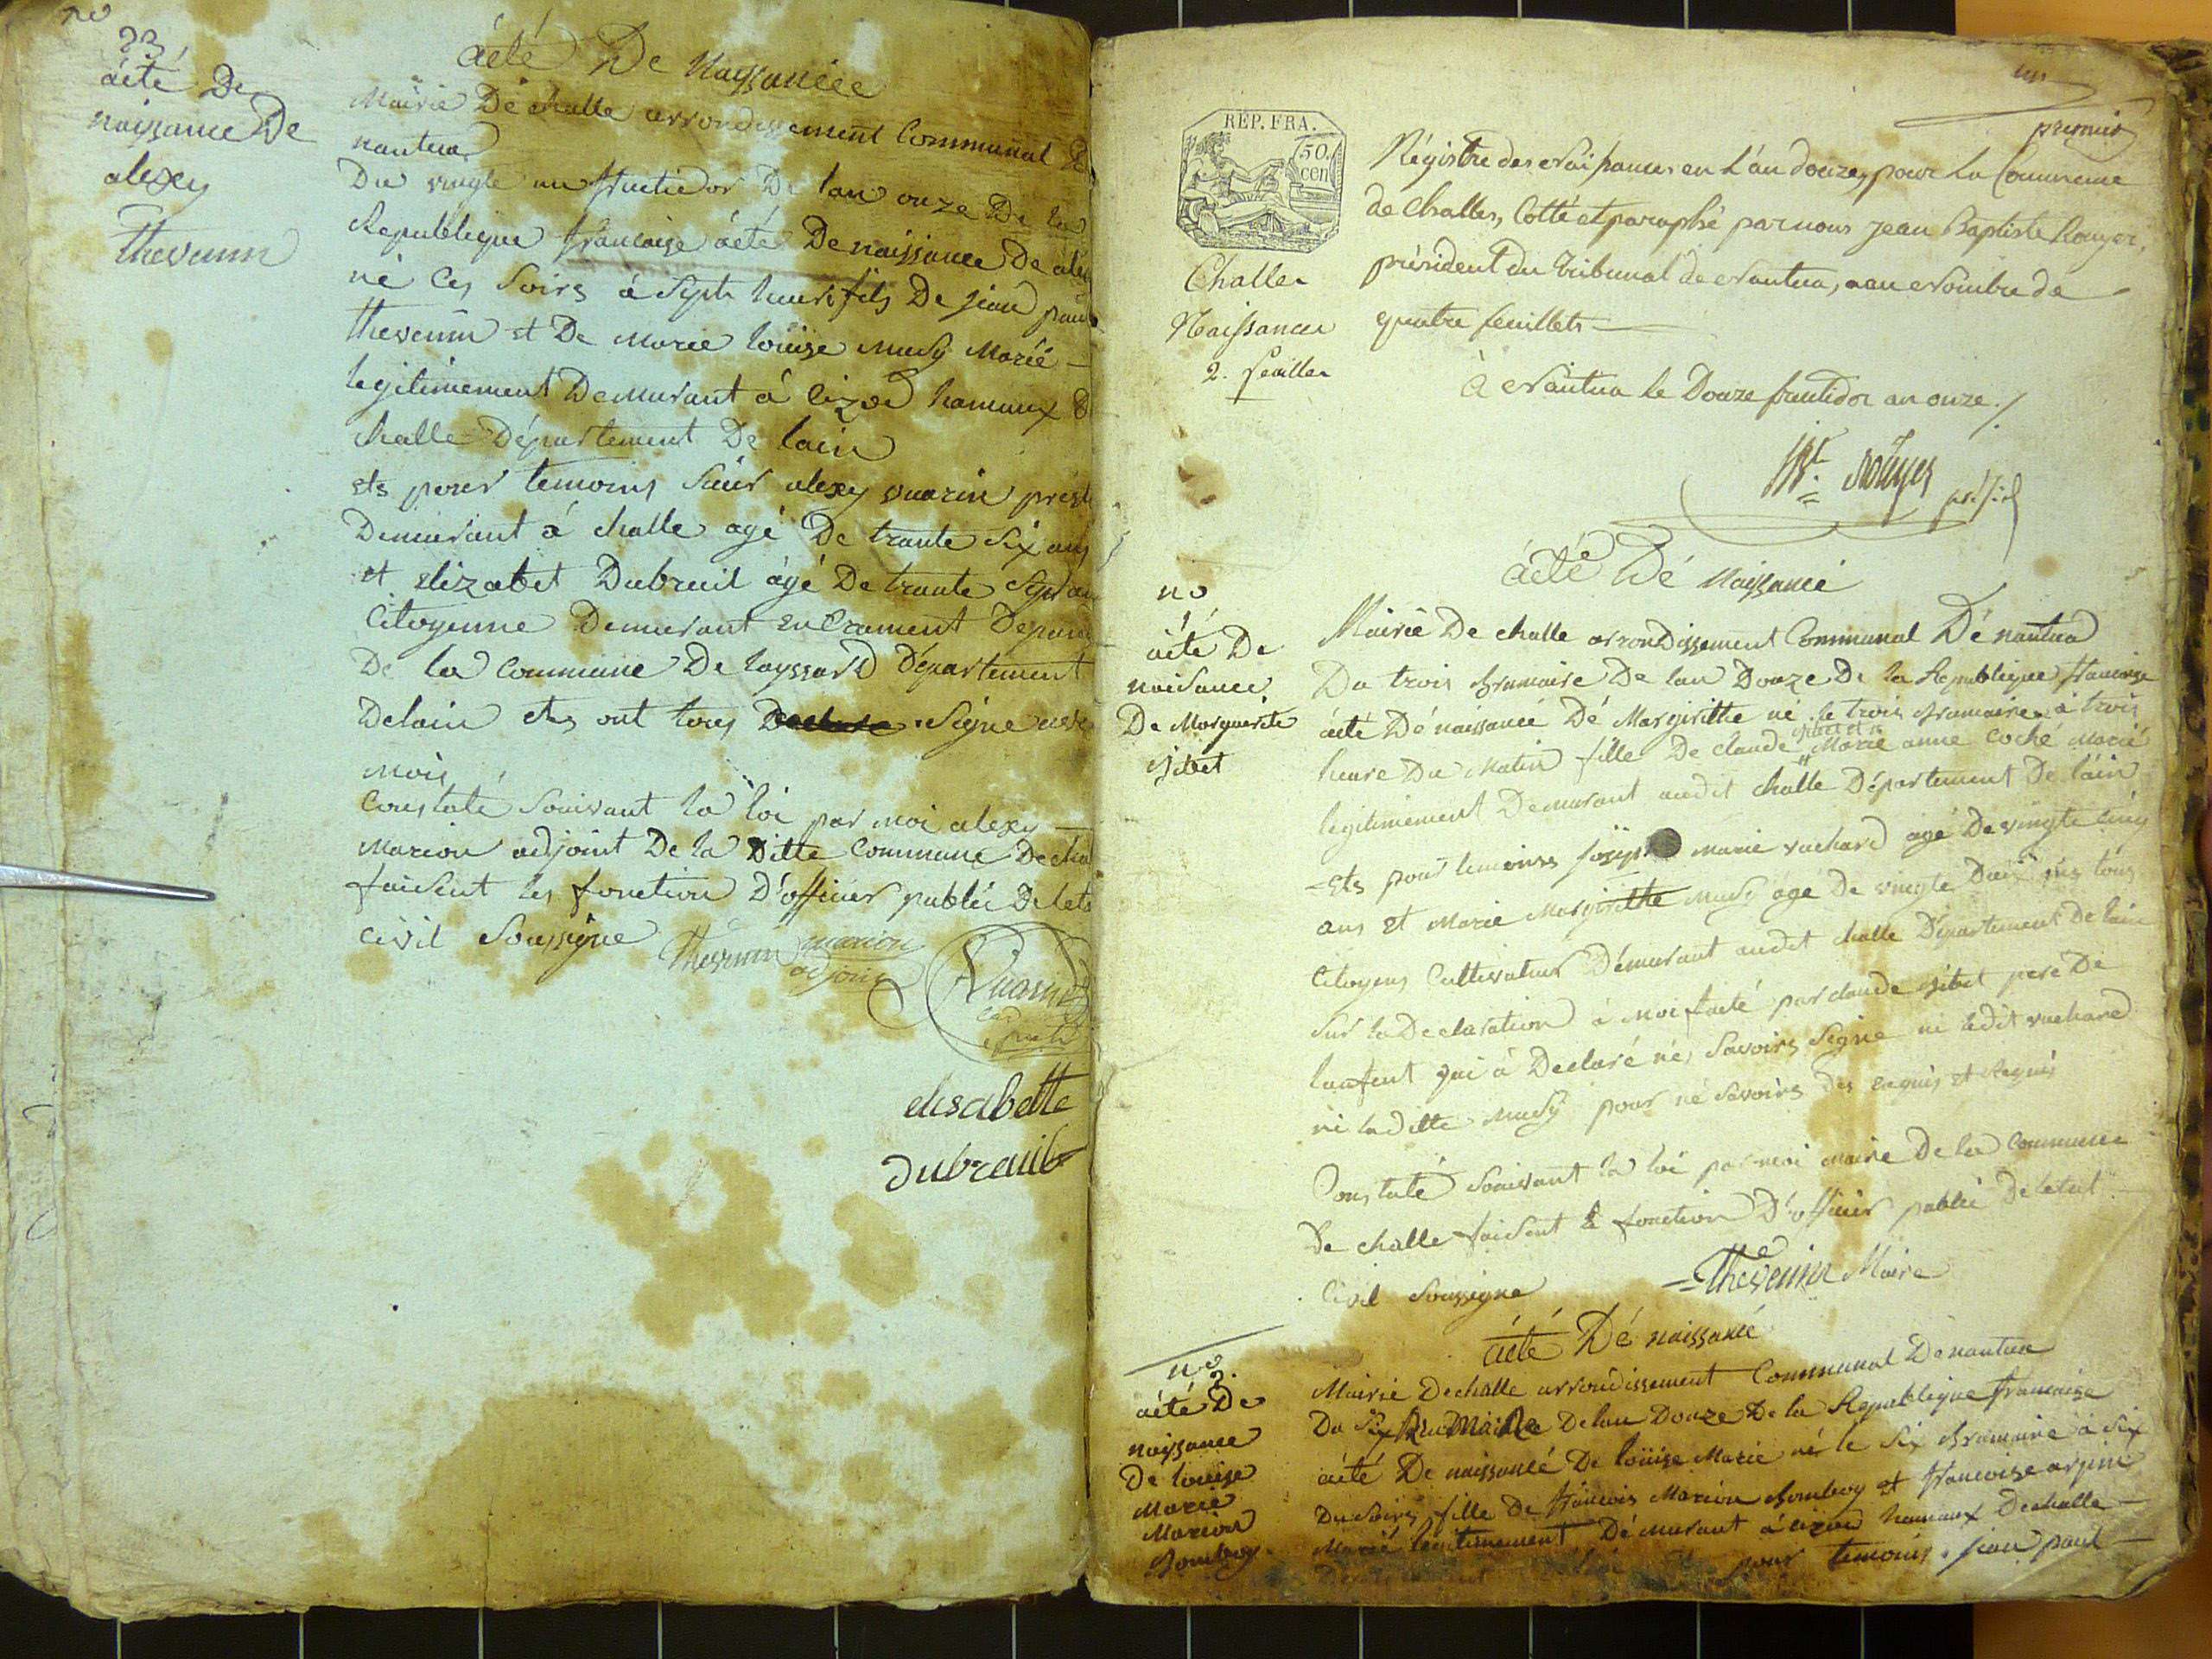 no
23
áctté De
naissance De
alexy
thevenin
ácté De Nayssancée
Mairie De challe arrondissement Communal
nantua
Du vingte un fructidor De lan onze De la
Republique francaise ácté De naissance De alex
né Ces Soirs á Septe heure fils De jean paul
thevenin et De Marie loüise Musy Marié
legitimement Demurant á lizod hamaux
challe Département De lain
ets pour temoins Sieur alexy vuarin prest
Demeurant á challe agé De trante Six ans
et Elizabet Dubreuil ágé De trante Sept an
Citoyenne Demeurant En Crament Depan
De la Commune De layssard Département
Delain ets ont tous Signe avec
moi
Constaté Souivant la loi par moi alexy
Marion adjoint De la Ditte Commune De cha
faisent les fonction D'officier public De leta
civil Soussigne
thevenin marion
adjoint
Vuarin
elisabette
dubreuil
premier
REP. FRA.
50.
cen
Challes
Naissances
2. feuilles
Régistre des Naissances en L'an douze, pour la Commune
de Challes, Cotté et paraphé par nous Jean Baptiste Rouyer,
président du Tribunal de Nantua, au Nombre de
quatre feuillets
à Nantua le Douze fructidor an onze.
Bt. Rouyer
ácté Dé Naissancé
no
1
ácté De
naissance
De Marguerite
jibet
Mairie De challe arrondissement Communal Dé nantua
Du trois Brumaire De lan Douze De la Republique francaise
ácté Dé naissancé Dé Margiritthe né le trois Brumaire á trois
heure Du Matin fille De claude jibet et Marie anne Coché Marié
legitimement Demurant audit challe Département De lain
Ets pour temoins josept marie vuchard agé De vingte cinq
ans et Marie Margiritthe Musy agé De vingte Deux ans tous
Citoyens Cultivateur Démurant audit challe Département De lain
Sur la Declaration á moi faité par claude jibet pere De
lanfent qui á Declaré né Savoirs Signe ni ledit vuchard
ni laditte Musy pour né Savoirs Des enquis et Requis
Constaté Souivant la loi par moi maire De la Commune
De challe faisent le fonction D'officier public De letat
Civil Soussigne
thevenin Maire
no
2.
ácté De
naissance
De louise
Marie
Marion
Bomboy
ácté Dé naissancé
Mairie De challe arrondissement Communal De nantua
Du Six Brumaire De lan Douze De la Republique francaise
ácté De naissancé De loüise Marie né le Six Brumaire á Six
Du Soirs fille De francois Marion Bomboy et francoise
Marié legitimement Démurant á lizod hamaux De challe
pour temoins jean paul